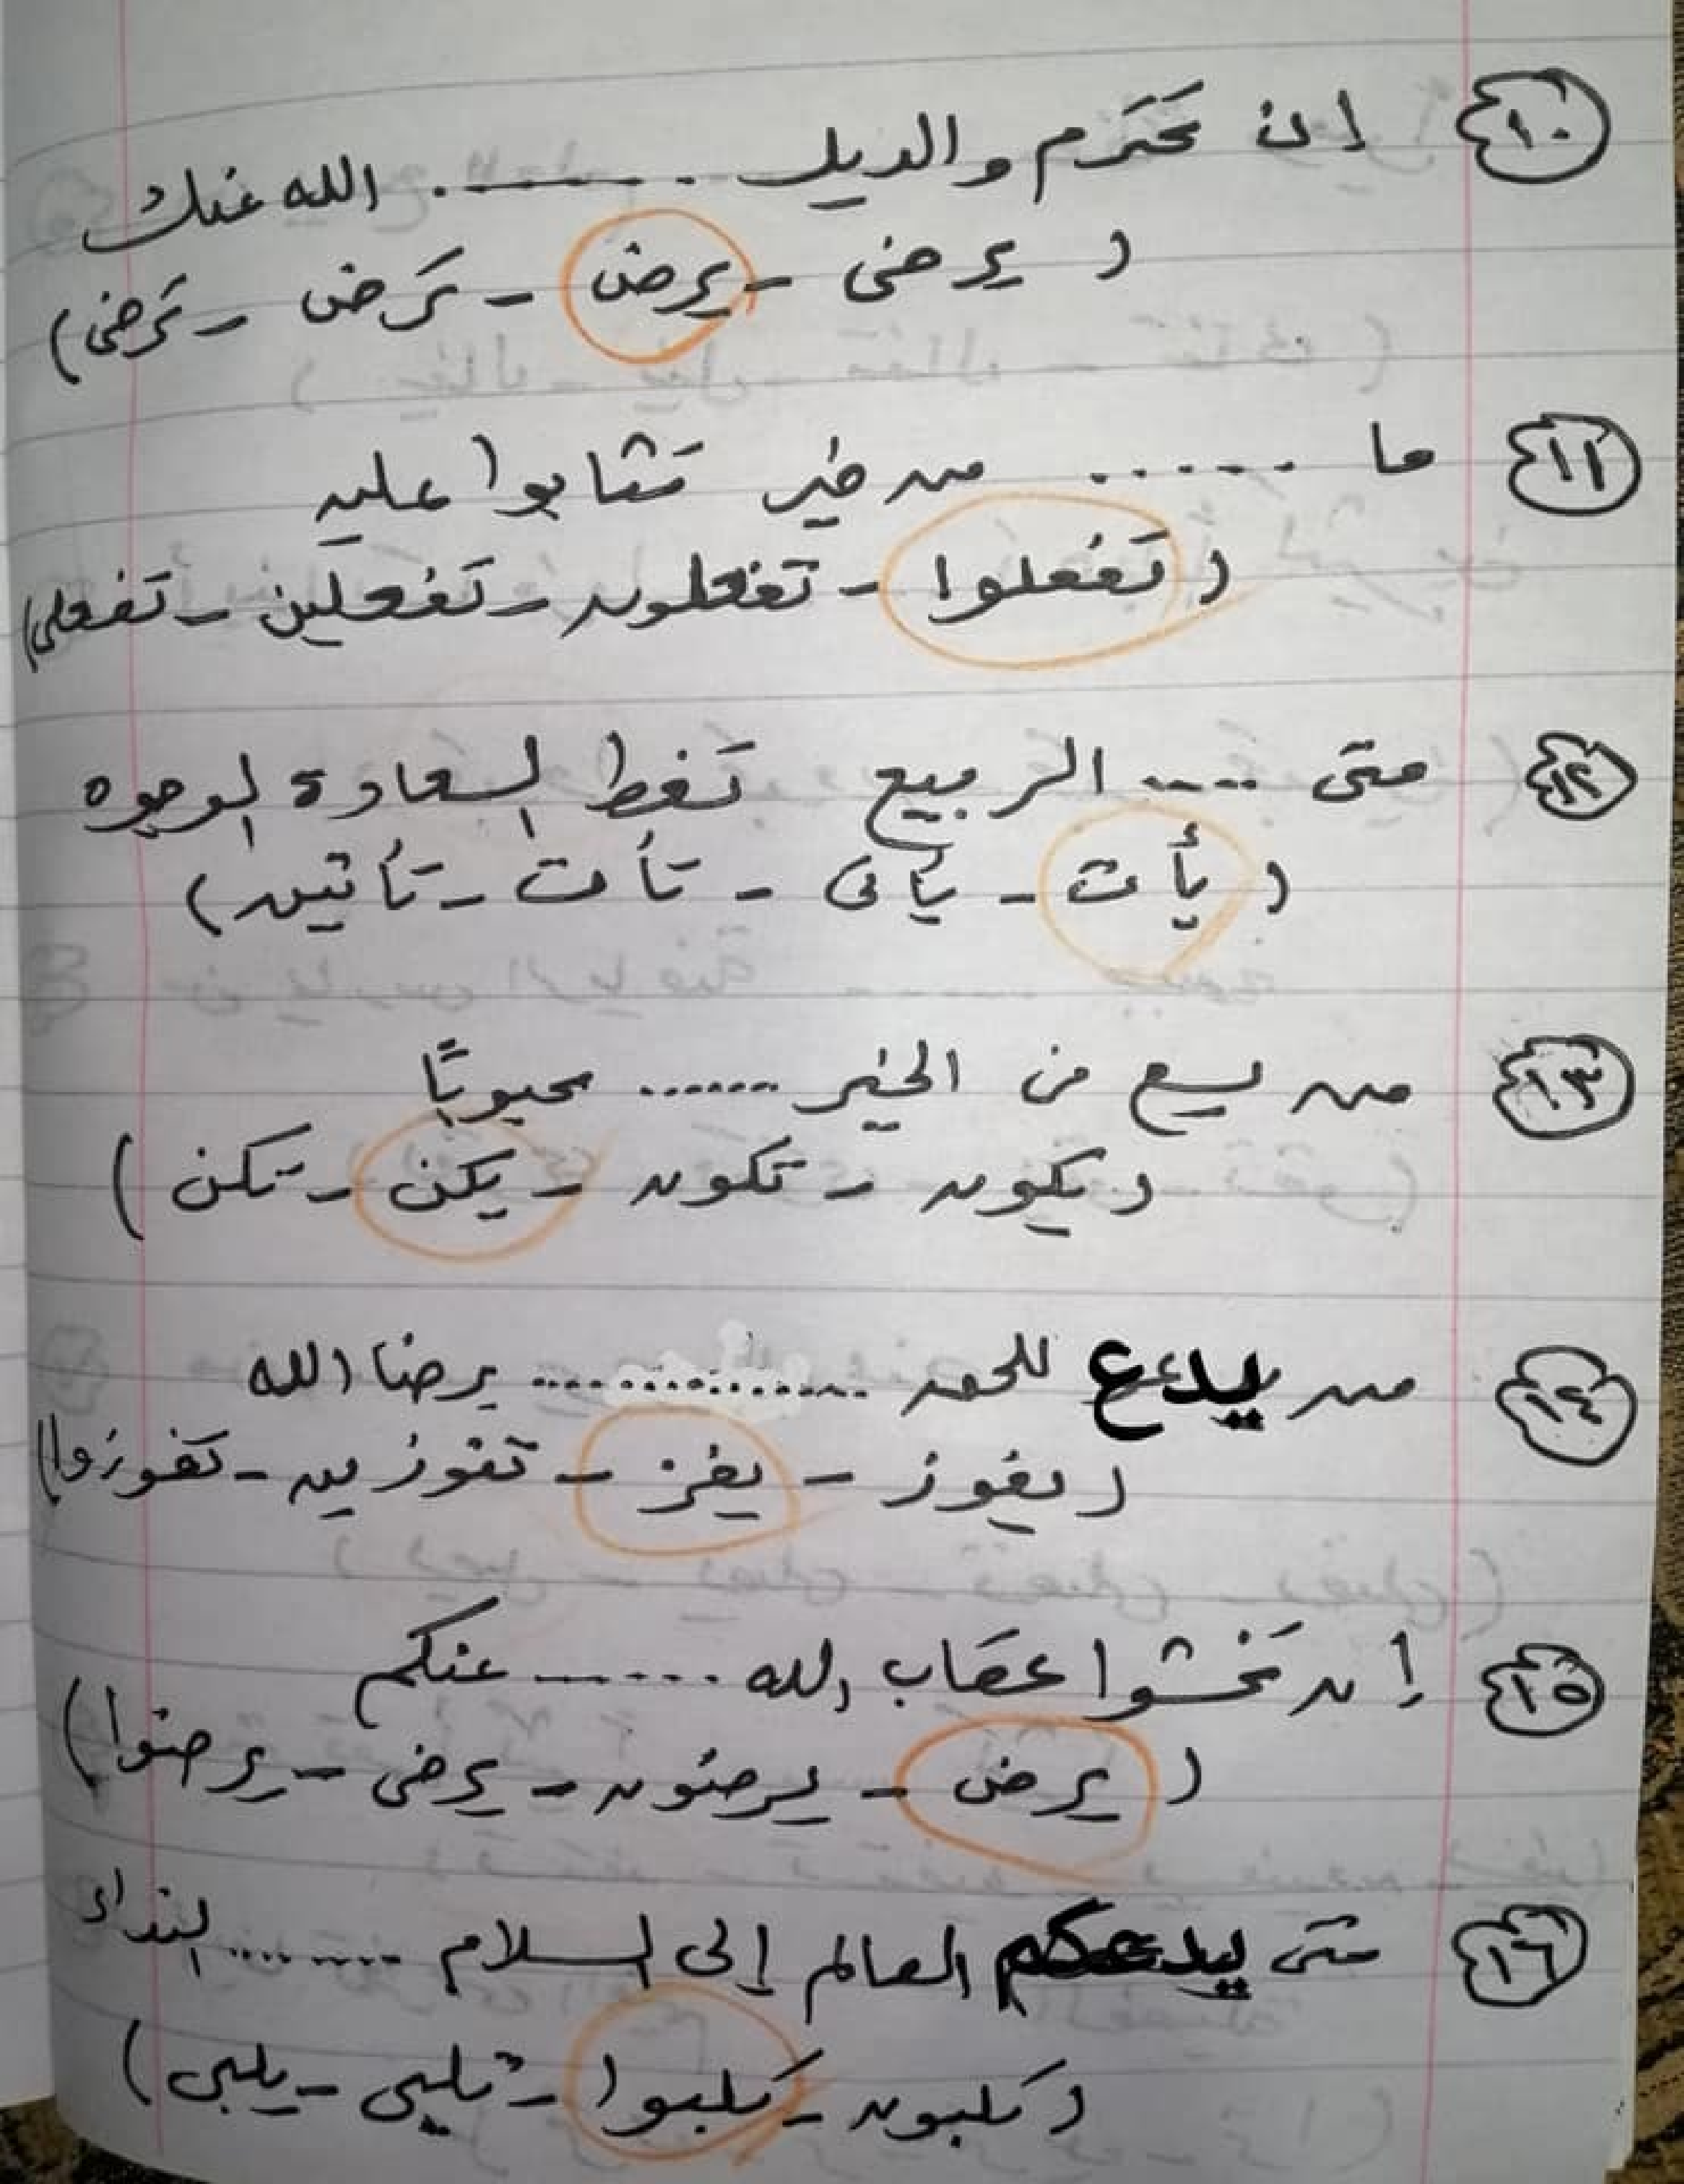 ١٠ إن تحترم والديك ........ الله عنك
( يرضى - يرض - ترض - ترضى )
١١ ما ...... من خير تثابوا عليه
( تفعلوا - تفعلون - تفعلين - تفعلى )
١٢ متى ..... الربيع تغط السعادة الوجوه
( يأت - يأتى - تأت - تأتين )
١٣ من يسع فى الخير ....... محبوبًا
( يكون - تكون - يكن - تكن )
١٤ من يدع للحق ............... برضا الله
( يفوز - يفز - تفوزين - تفوزوا )
١٥ إن تخشوا عقاب الله ....... عنكم
( يرض - يرضون - يرضى - يرضوا )
١٦ متى يدعكم العالم إلى السلام ......... النداء
( تلبون - تلبوا - تلبى - يلبى )